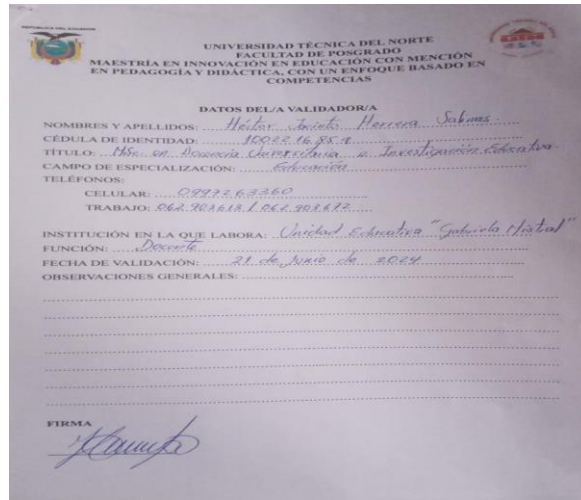 REPÚBLICA DEL ECUADOR
UNIVERSIDAD TÉCNICA DEL NORTE
FACULTAD DE POSGRADO
MAESTRÍA EN INNOVACIÓN EN EDUCACIÓN CON MENCIÓN
EN PEDAGOGÍA Y DIDÁCTICA, CON UN ENFOQUE BASADO EN
COMPETENCIAS
DATOS DEL/A VALIDADOR/A
NOMBRES Y APELLIDOS: Héitor Jacinto Herrera Salinas
CÉDULA DE IDENTIDAD:
TÍTULO: MSc. en Docencia Universitaria e Investigación Educativa
CAMPO DE ESPECIALIZACIÓN: Educación
TELÉFONOS:
CELULAR: 0997263360
TRABAJO:
INSTITUCIÓN EN LA QUE LABORA: Unidad Educativa "Gabriela Mistral"
FUNCIÓN: Docente
FECHA DE VALIDACIÓN: 21 de Junio de 2024
OBSERVACIONES GENERALES:
FIRMA